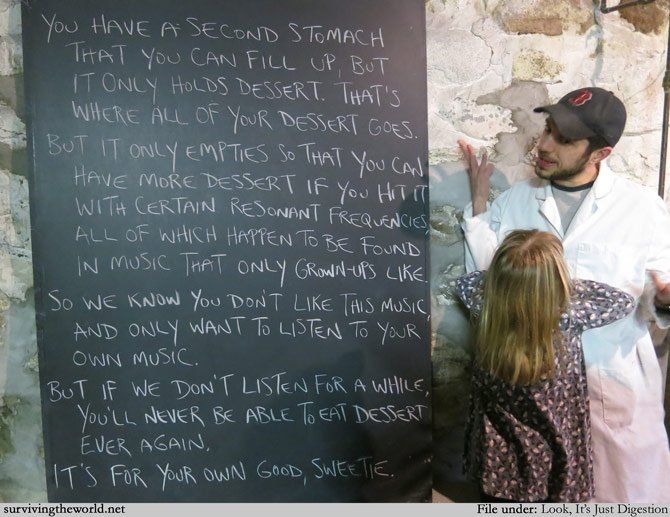 YOU HAVE A SECOND STOMACH
THAT YOU CAN FILL UP, BUT
IT ONLY HOLDS DESSERT. THAT'S
WHERE ALL OF YOUR DESSERT GOES.
BUT IT ONLY EMPTIES SO THAT YOU CAN
HAVE MORE DESSERT IF YOU HIT IT
WITH CERTAIN RESONANT FREQUENCIES,
ALL OF WHICH HAPPEN TO BE FOUND
IN MUSIC THAT ONLY GROWN-UPS LIKE.
SO WE KNOW YOU DON'T LIKE THIS MUSIC,
AND ONLY WANT TO LISTEN TO YOUR
OWN MUSIC.
BUT IF WE DON'T LISTEN FOR A WHILE,
YOU'LL NEVER BE ABLE TO EAT DESSERT
EVER AGAIN.
IT'S FOR YOUR OWN GOOD, SWEETIE.
survivingtheworld.net
File under: Look, It's Just Digestion